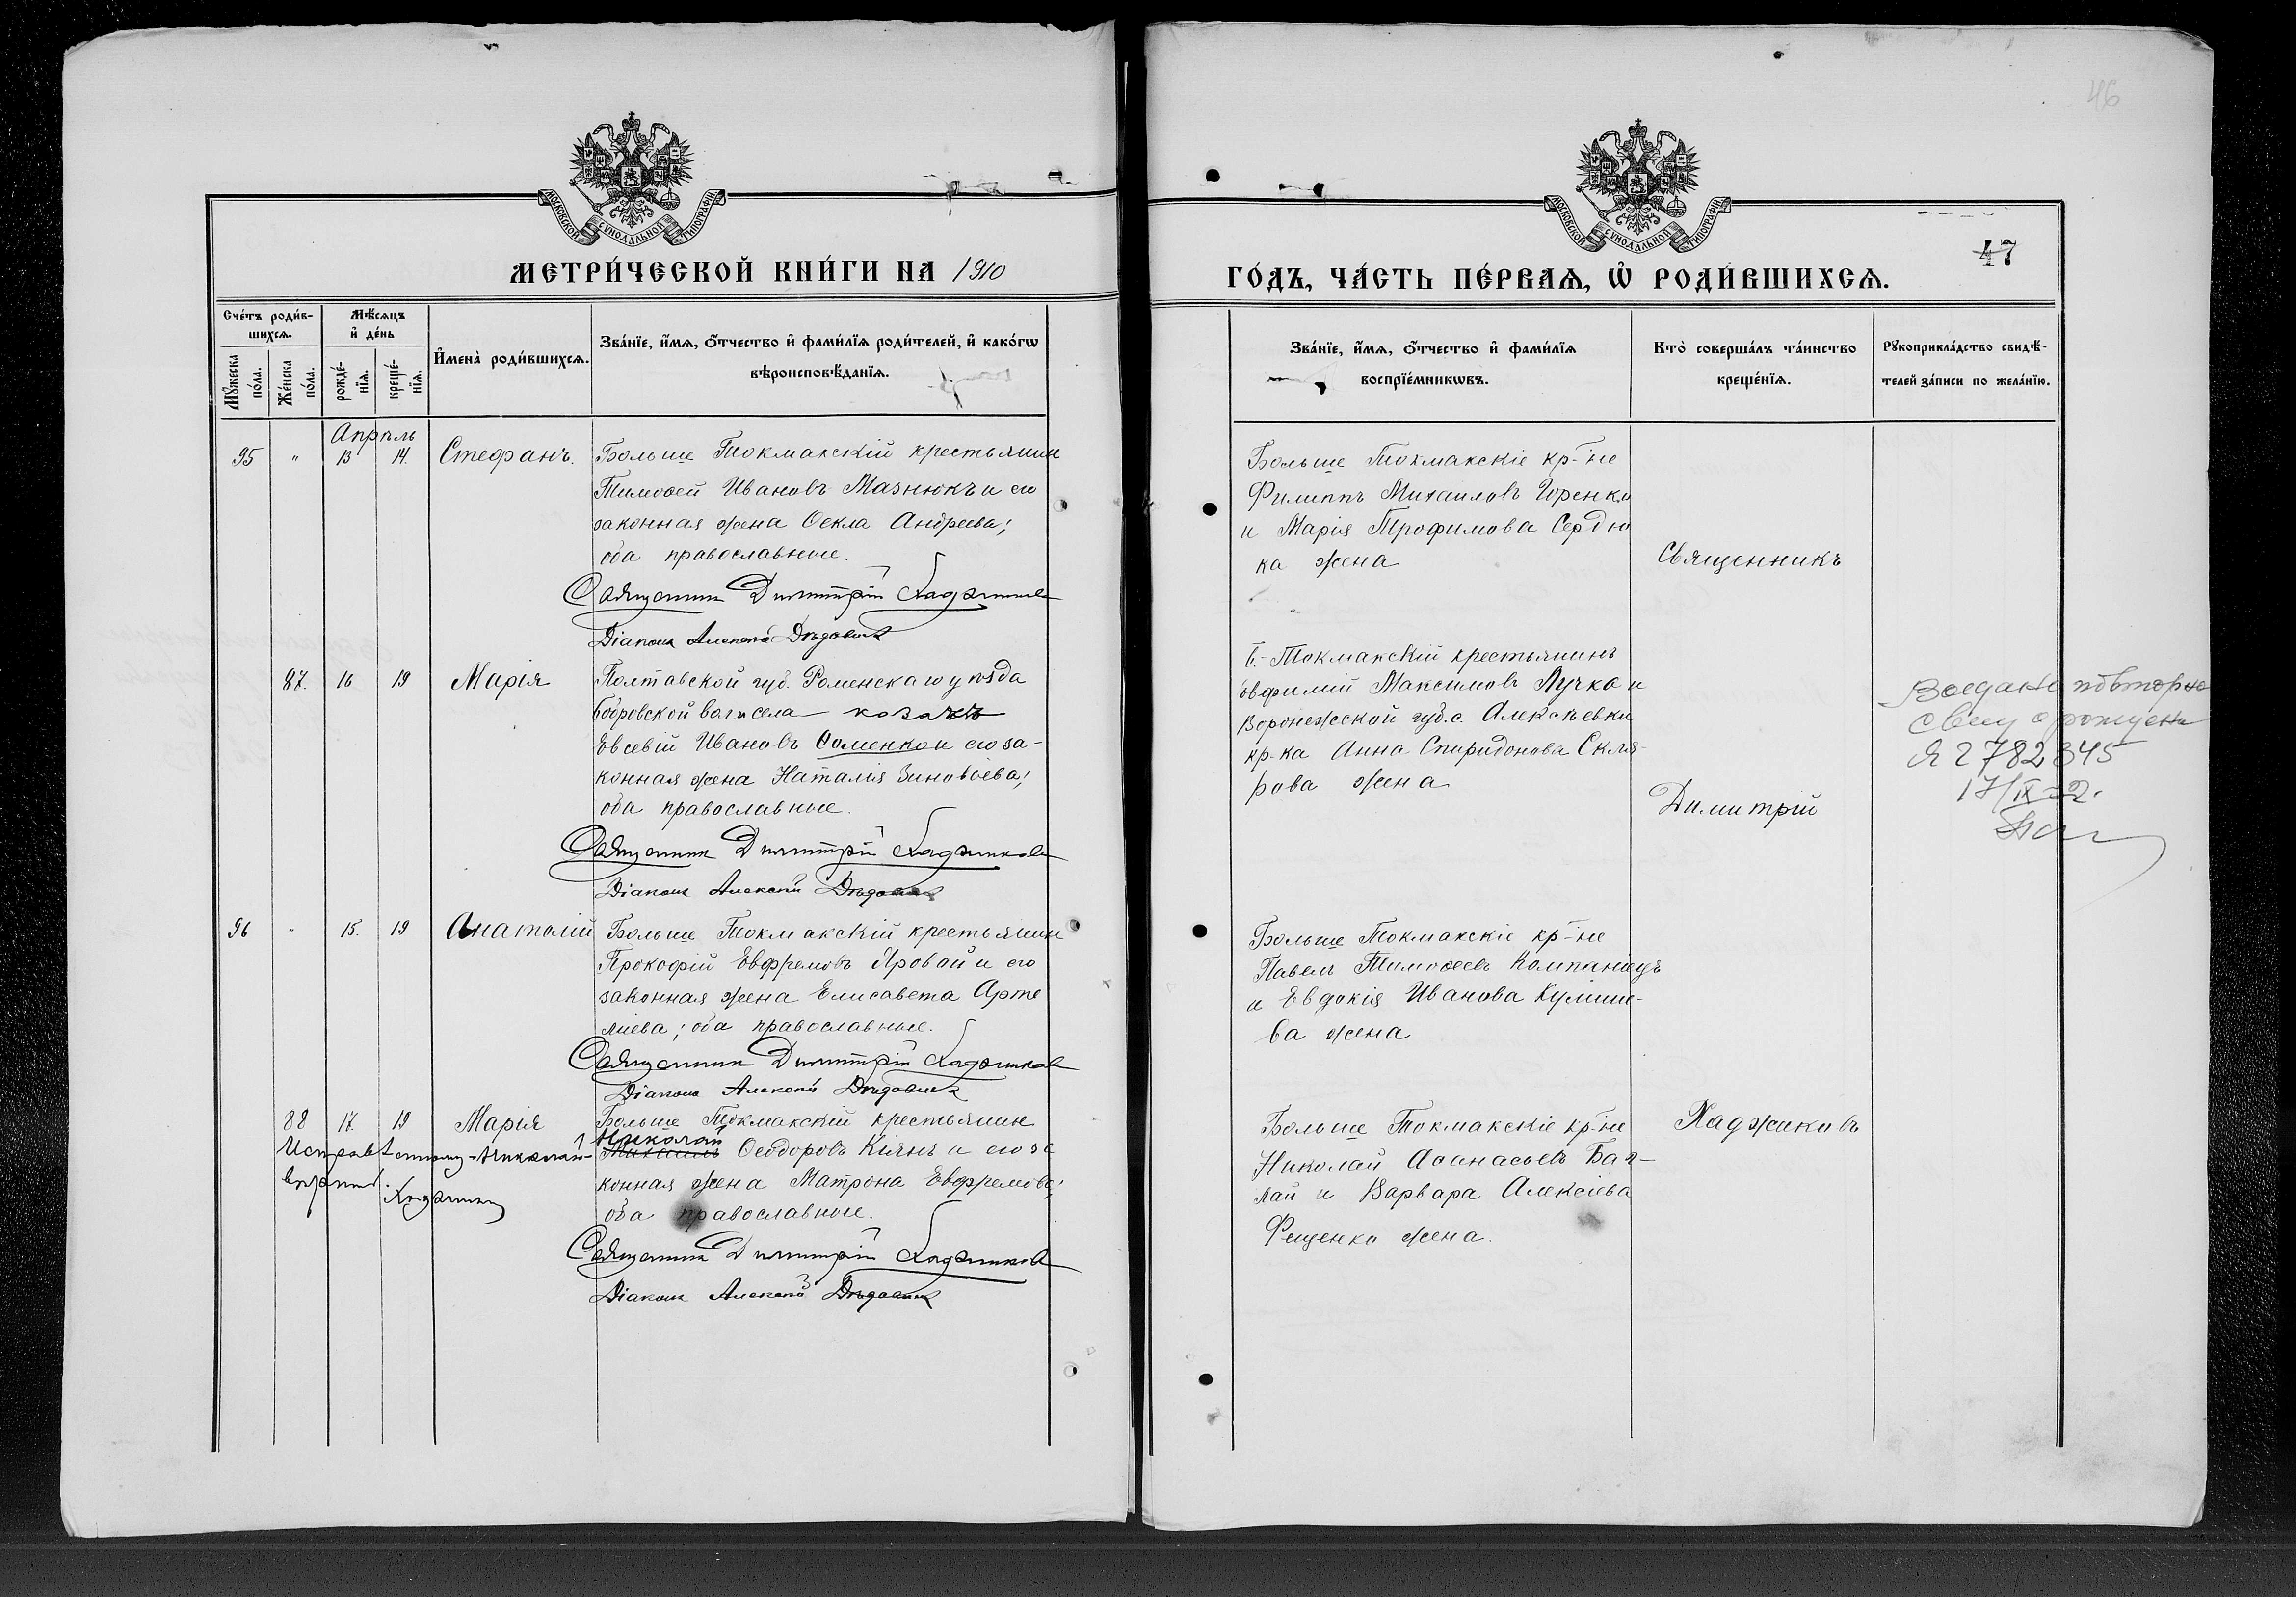 МОСКОВСКОЙ СѴНОДАЛЬНОЙ ТИПОГРАФІИ
МЕТРИ́ЧЕСКОЙ КНИ́ГИ НА 1910
Сче́тъ роди́в-
шихсѧ.
Мѣ́сѧцъ
и҆ де́нь
Мꙋ́жеска
по́ла.
Же́нска
по́ла.
рожде́-
нїѧ.
креще́-
нїѧ.
И҆мена̀ роди́вшихсѧ.
Зва́нїе, и҆́мѧ, ѻ҆́тчество и҆ фами́лїѧ роди́телей, и҆ како́гѡ
вѣроисповѣ́данїѧ.
Апрѣль
95 " 13 14. Стефанъ. Больше Токмакскій крестьянин
Тимоѳей Ивановъ Мазнюкъ и его
законная жена Ѳекла Андреева;
оба православные.
Священник Димитрій Хаджиков
Діаконъ Алексѣй Дѣдович
87. 16 19 Марія Полтавской губ. Роменскаго уѣзда
козакъ
Евсевій Ивановъ Соменко и его за-
конная жена Наталія Зиновіева;
оба православные.
Священник Димитрій Хаджиков
Діаконъ Алексѣй Дѣдович
96 " 15. 19 Анатолій Больше Токмакскій крестьянин
Прокофій Евфремовъ Яровай и его
законная жена Елисавета Арте
міева; оба православные.
Священник Димитрій Хаджиков
Діаконъ Алексѣй Дѣдович
88 17. 19 Марія Больше Токмакскій крестьянин
Николай
Исправленному "Николай" Михаилъ Ѳеодоровъ Кіянъ и его за
вѣрить. Хаджиков конная жена Матрона Евфремова;
оба православные.
Священник Димитрій Хаджиков
Діаконъ Алексѣй Дѣдович
46
МОСКОВСКОЙ СѴНОДАЛЬНОЙ ТИПОГРАФІИ
47
ГО́ДЪ, ЧА́СТЬ ПЕ́РВАѦ, Ѡ҆ РОДИ́ВШИХСѦ.
Зва́нїе, и҆́мѧ, ѻ҆́тчество и҆ фами́лїѧ
воспрїе́мникѡвъ.
Кто̀ соверша́лъ та́инство
креще́нїѧ.
Рꙋкоприкла́дство свидѣ́-
телей за́писи по жела́нїю.
Больше Токмакскіе кр-іне
Филиппъ Михаиловъ Горенко
и Марія Трофимова Сердю
ка жена
Священникъ
Б.-Токмакскій крестьянинъ
Евфимій Максимовъ Лучка и
Воронежской губ. с. Алексѣевки
кр-ка Анна Спиридонова Скля-
рова жена
Димитрій
повторно
свид о рожден
2782845
17/IX
Больше Токмакскіе кр-іне
Павелъ Тимоѳеевъ Компаніецъ
и Евдокія Иванова Кулиши-
ва жена
Больше Токмакскіе кр-іне
Николай Аѳанасьевъ Бал-
лай и Варвара Алексіева
Фещенко жена.
Хаджиковъ